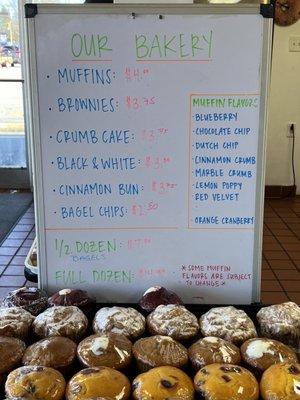 OUR BAKERY
· MUFFINS: $4.00
· BROWNIES: $3.75
· CRUMB CAKE:
· BLACK & WHITE:
· CINNAMON BUN:
· BAGEL CHIPS:
1/2 DOZEN:
BAGELS
FULL DOZEN:
MUFFIN FLAVORS
· BLUEBERRY
· CHOCOLATE CHIP
· DUTCH CHIP
· CINNAMON CRUMB
· MARBLE CRUMB
· LEMON POPPY
· RED VELVET
· ORANGE CRANBERRY
* SOME MUFFIN
FLAVORS ARE SUBJECT
TO CHANGE *